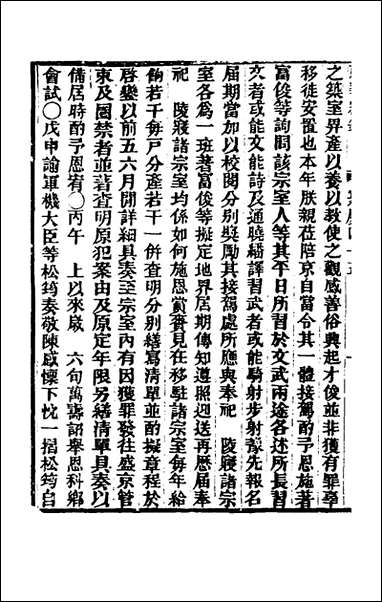 之築室畀產以養以教使之觀感善俗興起才俊並非獲有罪辜
移徙安置也本年朕親蒞陪京自當令其一體接駕酌予恩施著
富俊等詢問該宗室人等其平日所習於文武兩途各述所長習
文者或能文能詩及通曉繙譯習武者或能騎射步射豫先報名
屆期當加以校閱分別獎勵其接駕處所應與奉祀　陵寢諸宗
室各為一班著富俊等擬定地界屆期傳知遵照迎送再歷屆奉
祀　陵寢諸宗室均係如何施恩賞賚見在移駐諸宗室每年給
餉若干每戶分產若干一併查明分別繕寫清單並酌擬章程於
啓鑾以前五六月開詳細具奏至宗室內有因獲罪發往盛京管
束及圈禁者並著查明原犯案由及原定年限另繕清單具奏以
備屆時酌予恩宥○丙午　上以來歲　六旬萬壽詔舉恩科鄉
會試○戊申諭軍機大臣等松筠奏敬陳感懷下忱一摺松筠自